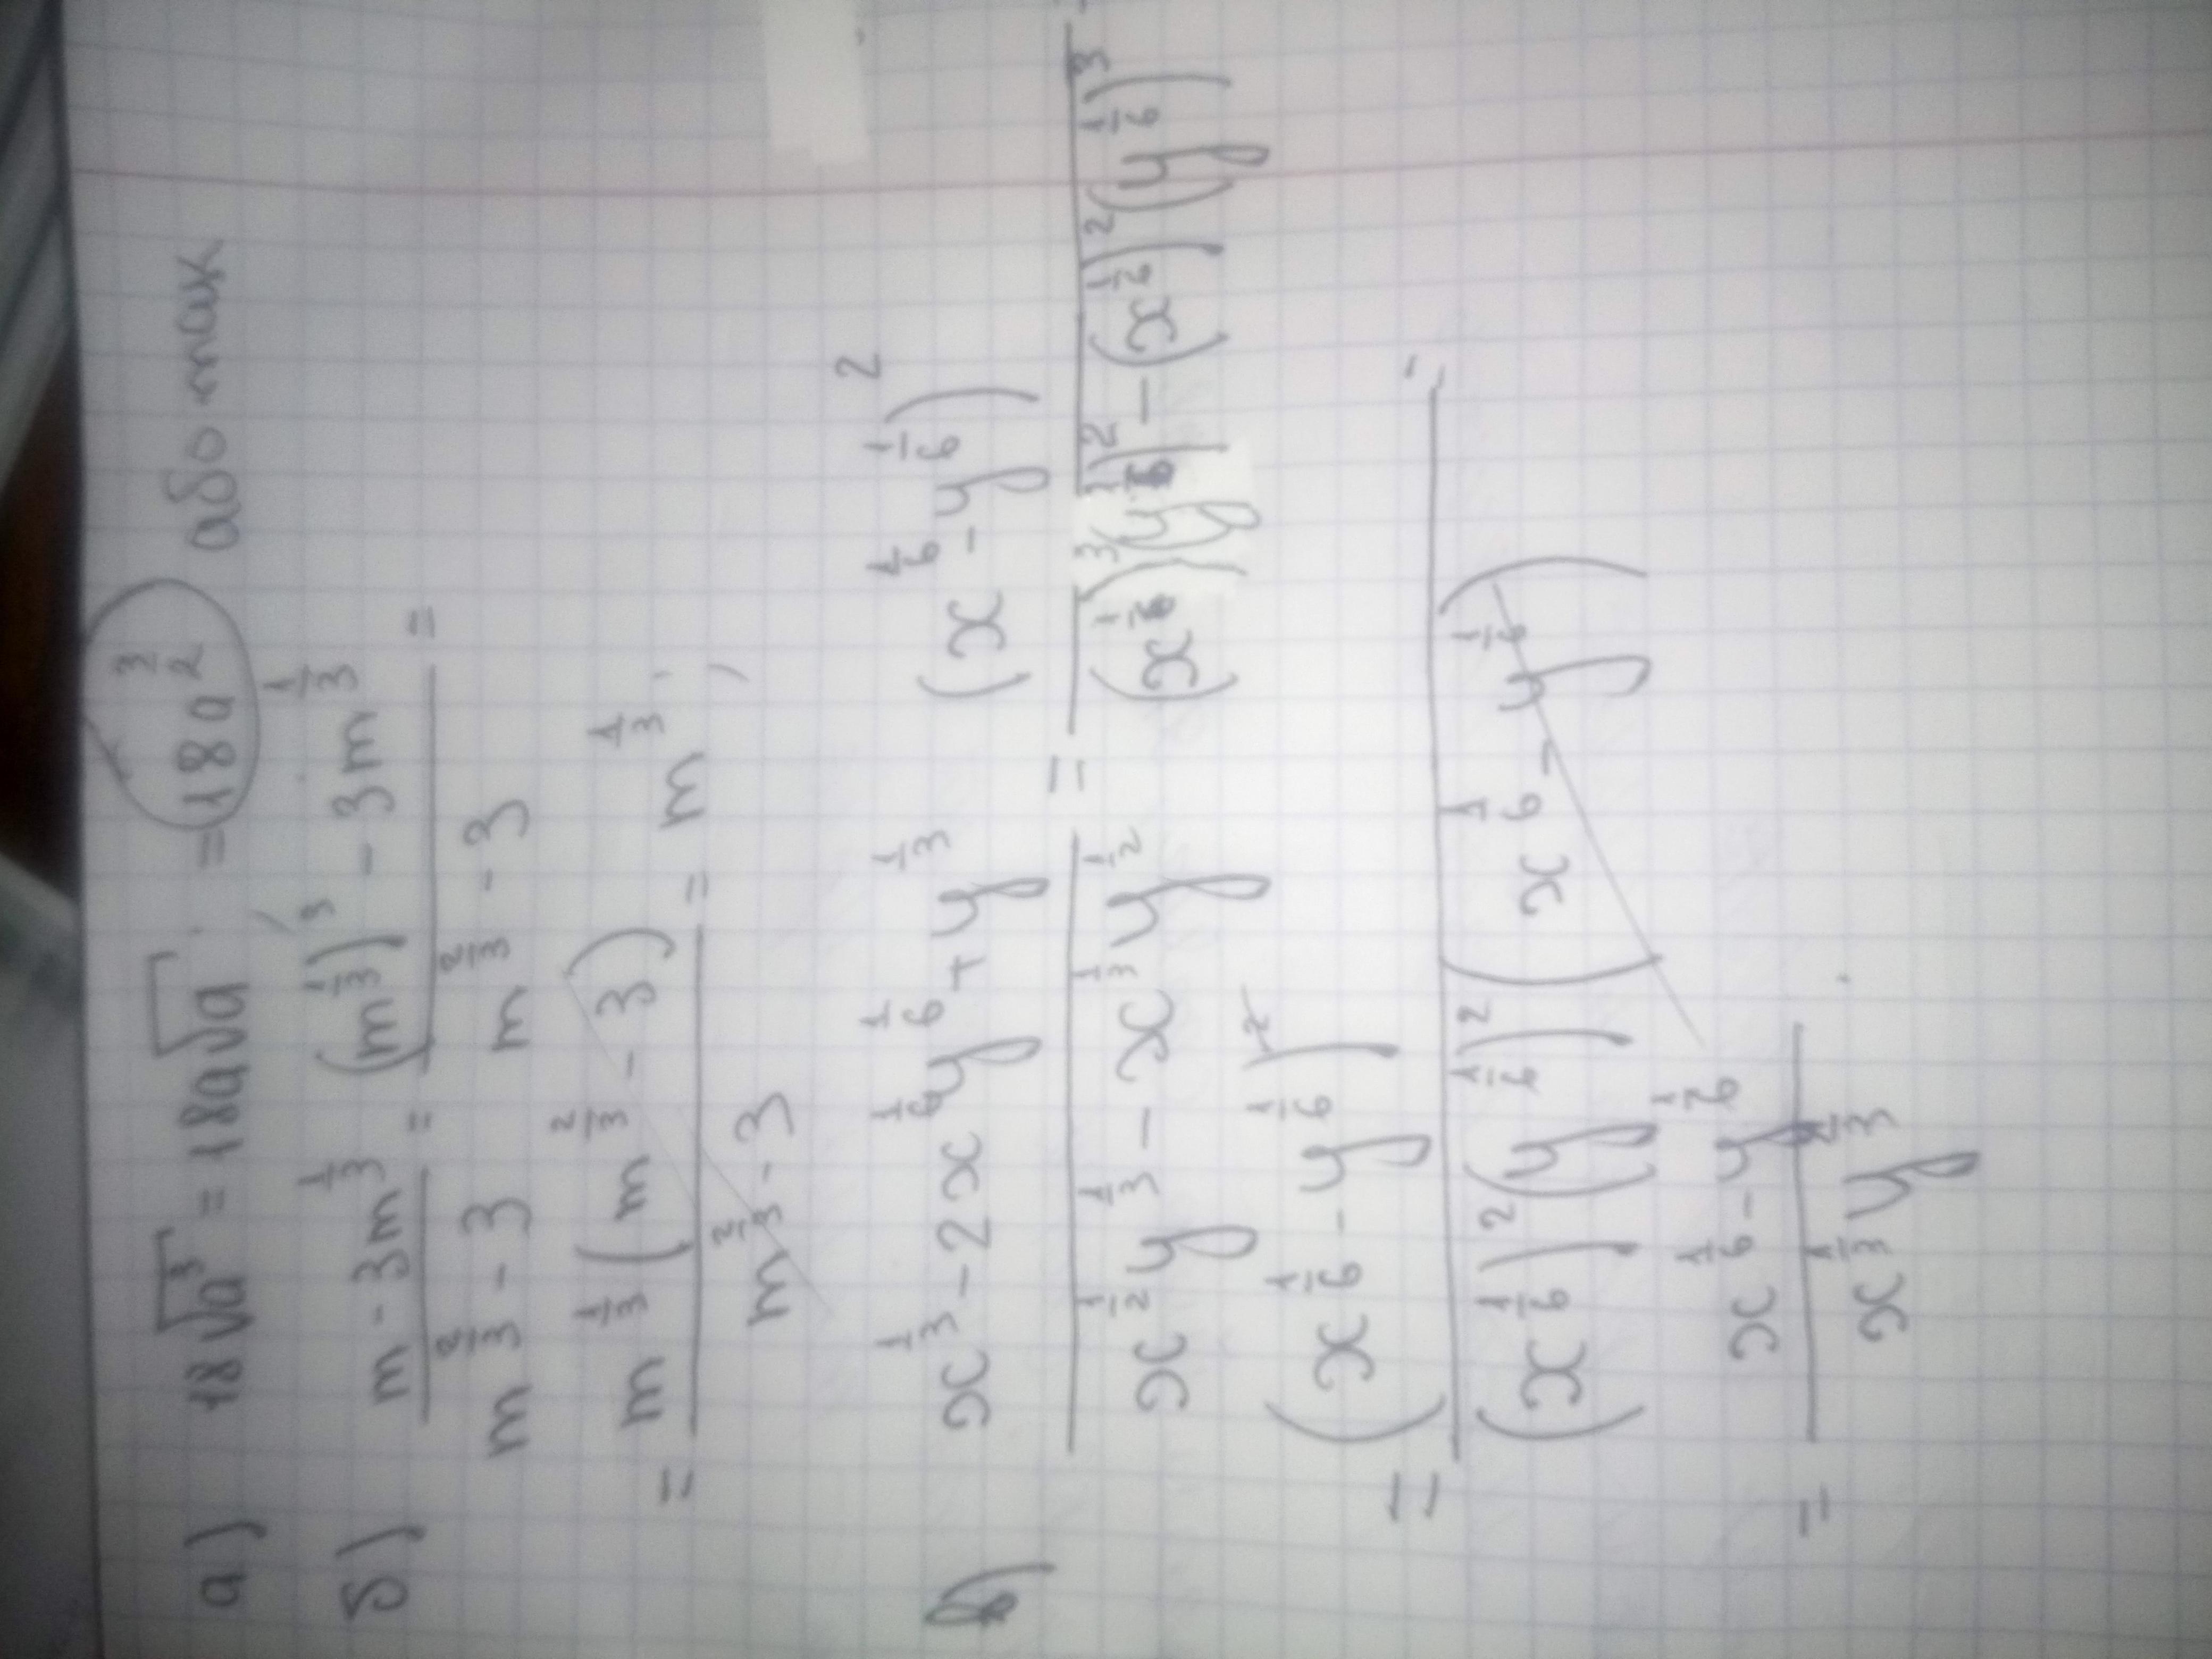 а) 18√a³ = 18a√a = 18a^(3/2) або так
б) (m - 3m^(1/3))/(m^(2/3) - 3) = ((m^(1/3))³ - 3m^(1/3))/(m^(2/3) - 3) =
= (m^(1/3)(m^(2/3) - 3))/(m^(2/3) - 3) = m^(1/3)
в) (x^(1/3) - 2x^(1/6)y^(1/6) + y^(1/3))/(x^(1/2)y^(1/3) - x^(1/3)y^(1/2)) = (x^(1/6) - y^(1/6))²/((x^(1/6))³(y^(1/6))² - (x^(1/6))²(y^(1/6))³) =
= (x^(1/6) - y^(1/6))²/((x^(1/6))²(y^(1/6))²(x^(1/6) - y^(1/6))) =
= (x^(1/6) - y^(1/6))/(x^(1/3)y^(1/3))